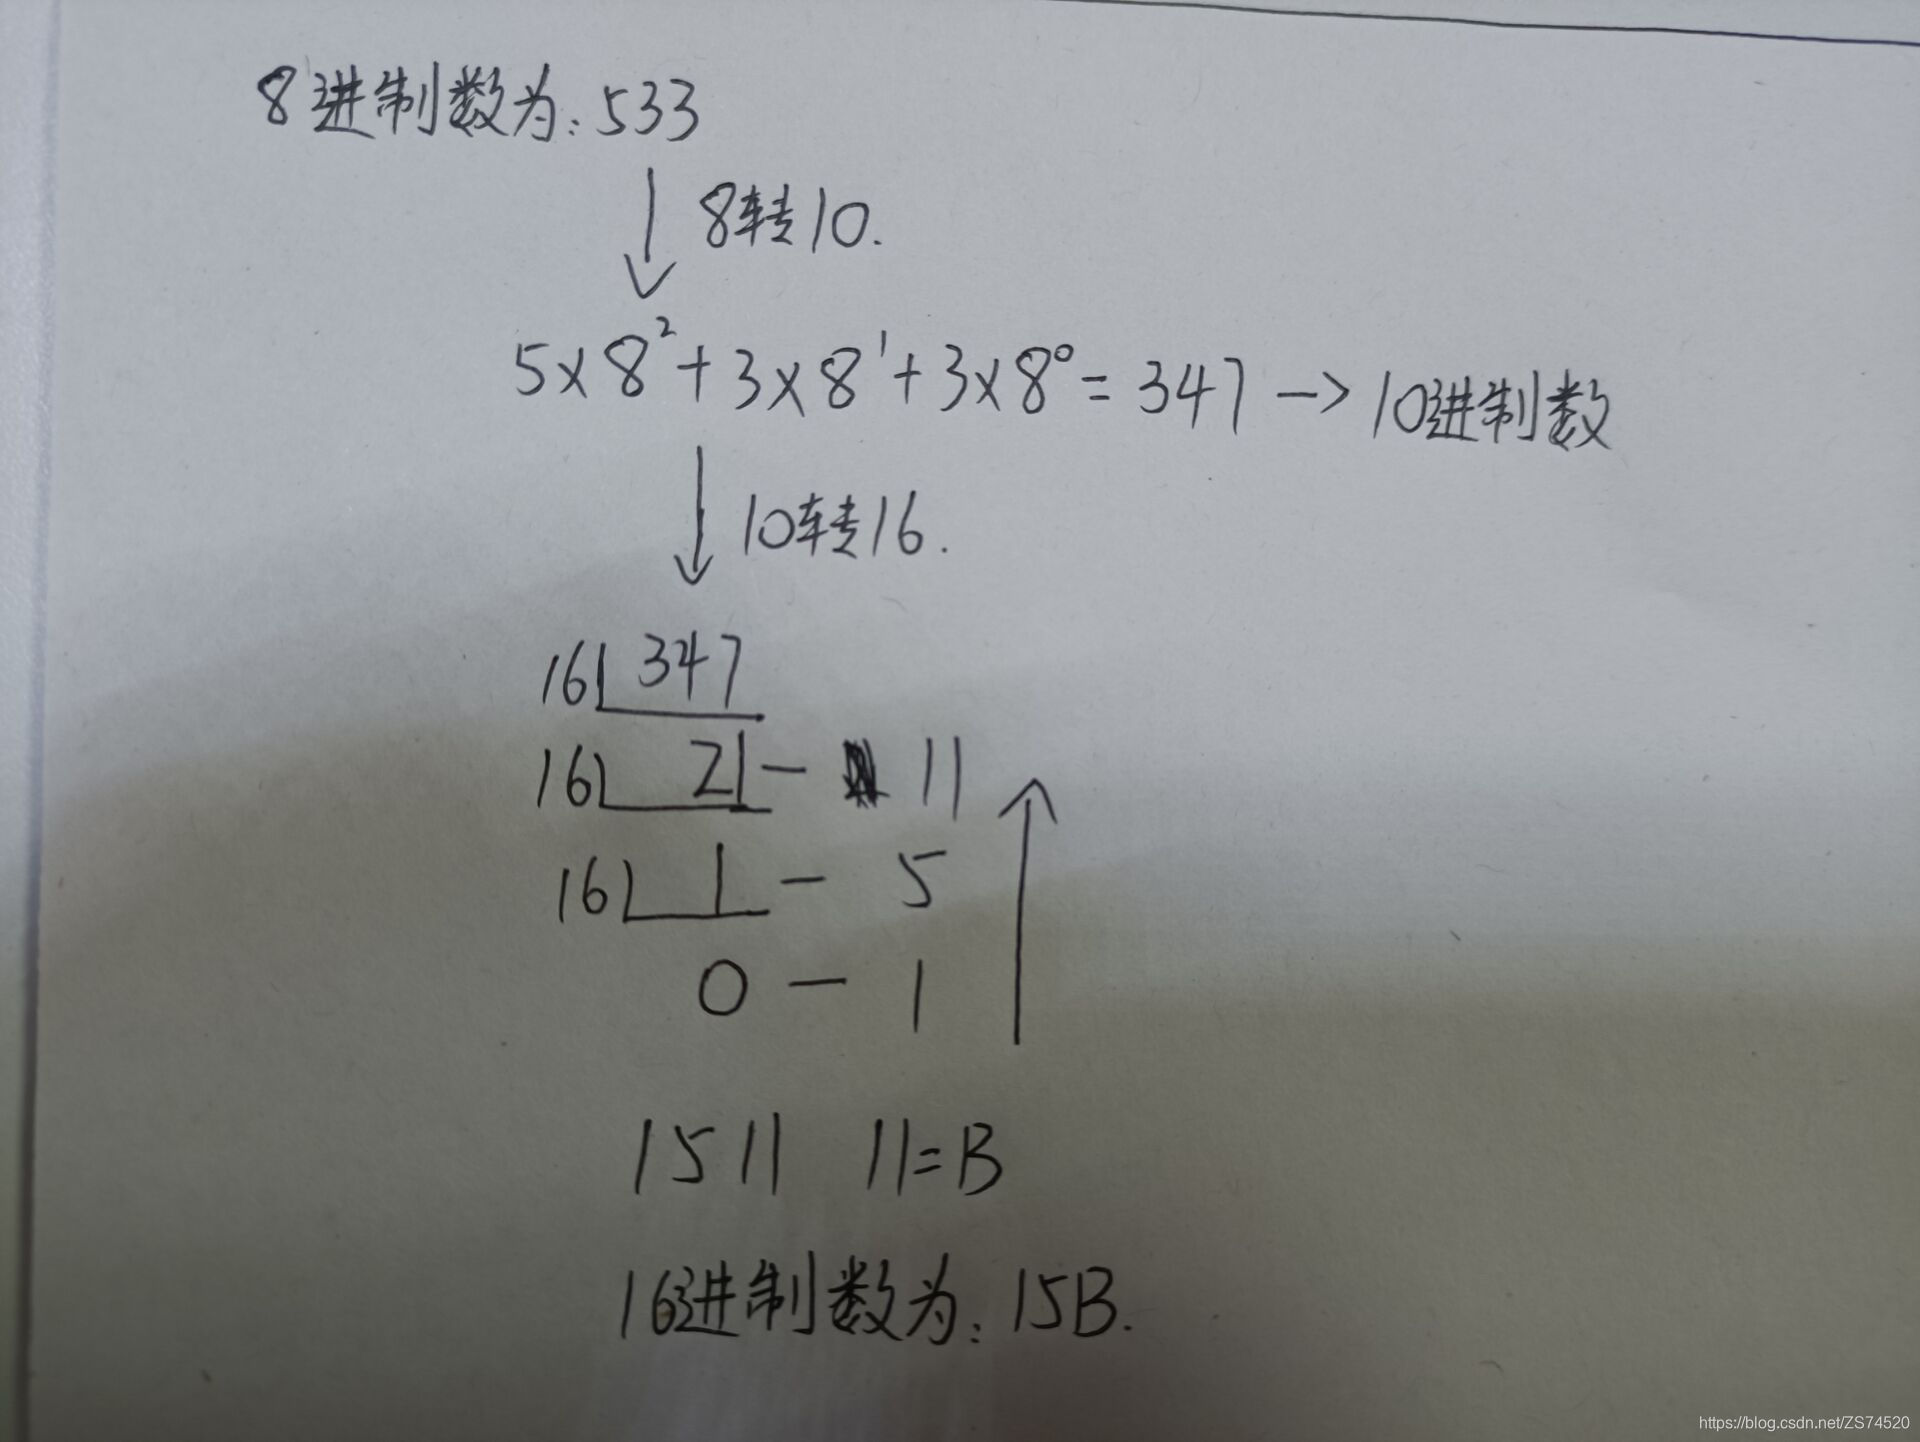 8进制数为:533
8转10.
5×8²+3×8¹+3×8⁰=347→10进制数
10转16.
16 347
16 21 - 11
16 1 - 5
0 - 1
1 5 11 11=B
16进制数为:15B.
https://blog.csdn.net/ZS74520